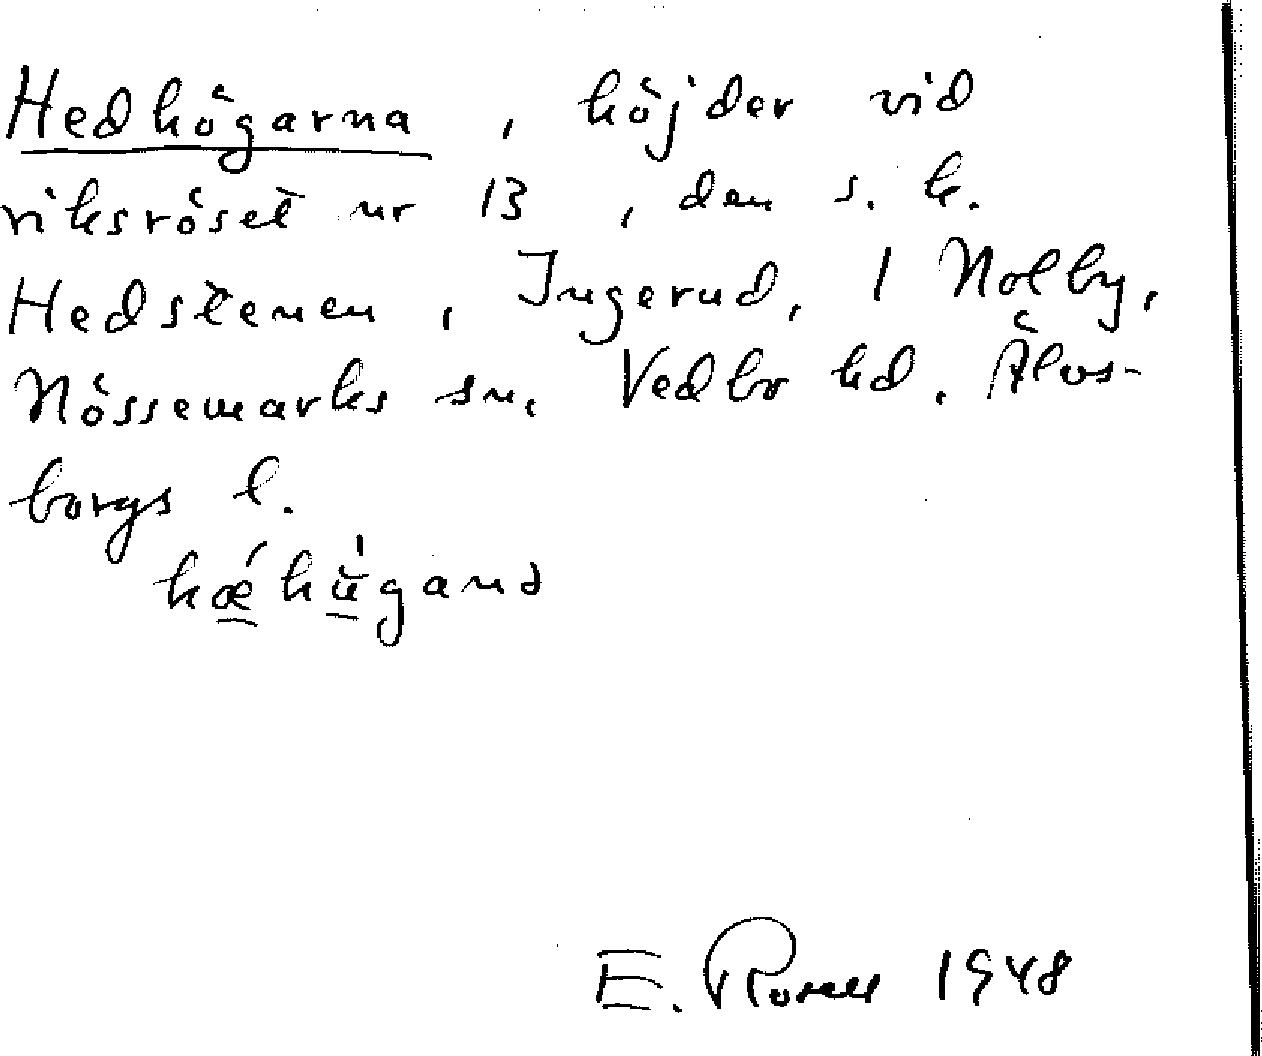 Hedhögarna, höjder vid
riksröset nr 13, den s. k.
Hedstenen, Ingerud, 1 Nolby,
Nössemarks sn. Vedbo hd. Älvs-
borgs l.
E. 1948